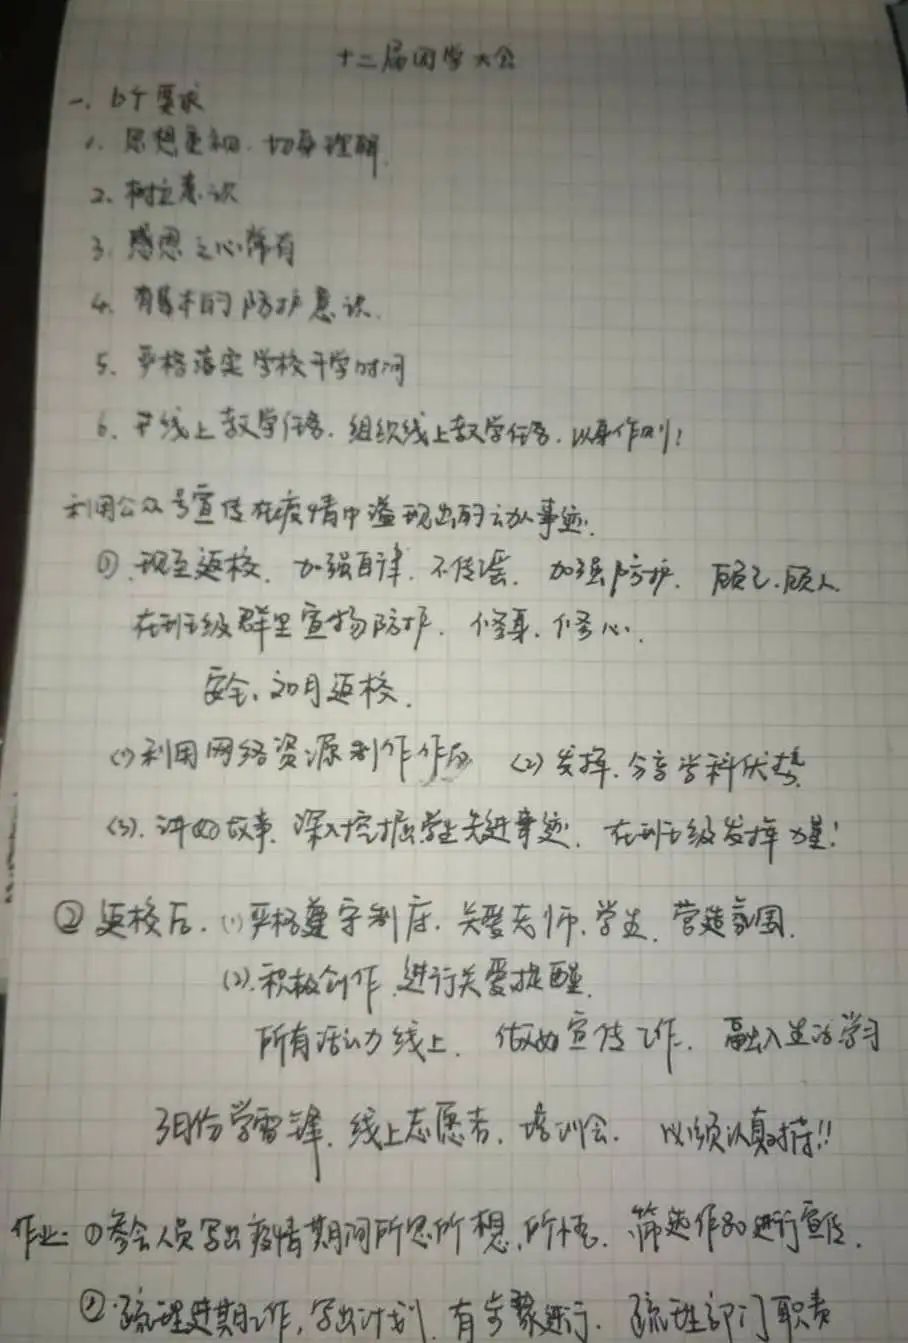 十二届开学大会
一、6个要求
1. 思想重视、切身理解
2. 树立意识
3. 感恩之心常有
4. 有基本的防护意识.
5. 严格落实学校开学时间
6. 线上教学任务. 组织线上教学任务. 以身作则!
利用公众号宣传在疫情中涌现出的动人事迹.
① 现至返校. 加强自律. 不传谣. 加强防护. 顾己.顾人
在班级群里宣扬防护. 修身.修心.
安全. 返校.
(1) 利用网络资源制作作品 (2) 发挥.分享学科优势
(3). 讲好故事. 深入挖掘学生先进事迹. 在班级发挥力量!
② 返校后. (1) 严格遵守制度. 关爱老师.学生. 营造氛围.
(2). 积极创作.进行关爱提醒.
所有活动线上. 做好宣传工作. 融入生活学习
3月份学雷锋. 线上志愿者. 培训会. 必须认真对待!!
作业: ① 参会人员写出疫情期间所思所想.所悟. 筛选作品进行宣传.
② 梳理近期工作, 写出计划. 有步骤进行. 梳理部门职责